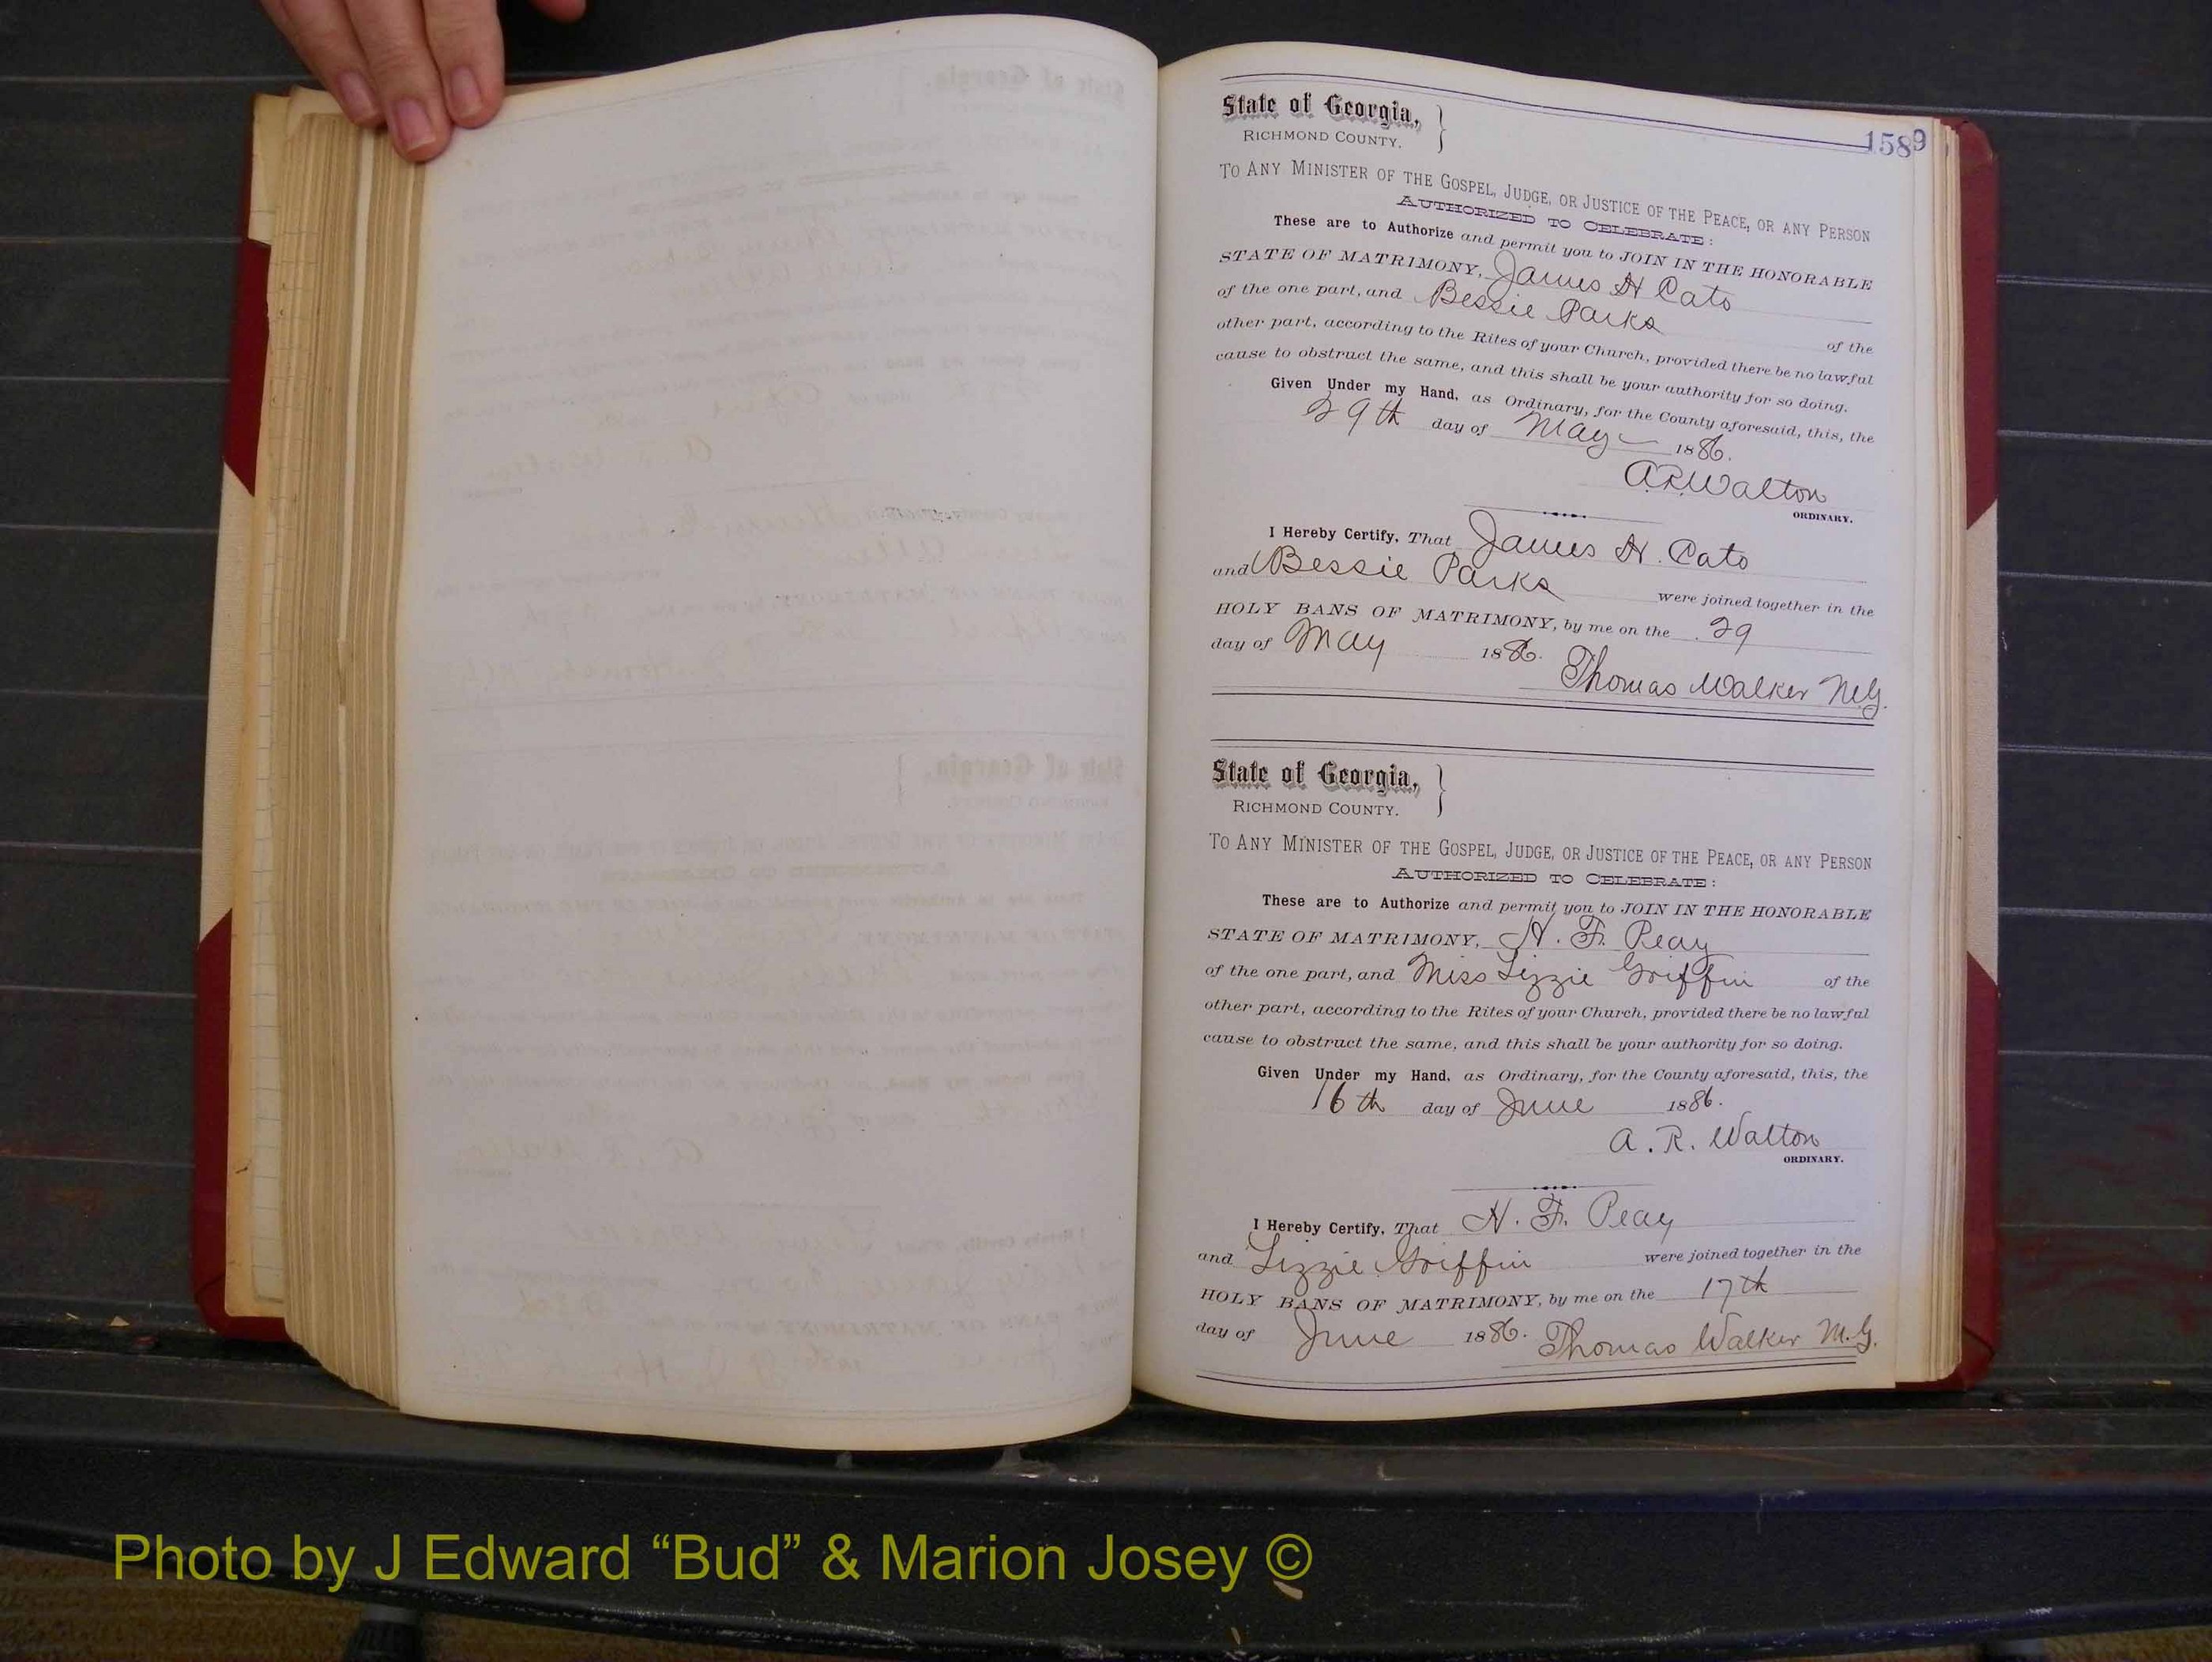 1589
State of Georgia,
RICHMOND COUNTY.
TO ANY MINISTER OF THE GOSPEL, JUDGE, OR JUSTICE OF THE PEACE, OR ANY PERSON
AUTHORIZED TO CELEBRATE:
These are to Authorize and permit you to JOIN IN THE HONORABLE
STATE OF MATRIMONY, James H Cato
of the one part, and Bessie Parks of the
other part, according to the Rites of your Church, provided there be no lawful
cause to obstruct the same, and this shall be your authority for so doing.
Given Under my Hand, as Ordinary, for the County aforesaid, this, the
29th day of May 1886.
A.R. Walton
ORDINARY.
I Hereby Certify, That James H. Cato
and Bessie Parks were joined together in the
HOLY BANS OF MATRIMONY, by me on the 29
day of May 1886.
Thomas Walker M.G.
State of Georgia,
RICHMOND COUNTY.
TO ANY MINISTER OF THE GOSPEL, JUDGE, OR JUSTICE OF THE PEACE, OR ANY PERSON
AUTHORIZED TO CELEBRATE:
These are to Authorize and permit you to JOIN IN THE HONORABLE
STATE OF MATRIMONY, H. F. Peay
of the one part, and Miss Lizzie Griffin of the
other part, according to the Rites of your Church, provided there be no lawful
cause to obstruct the same, and this shall be your authority for so doing.
Given Under my Hand, as Ordinary, for the County aforesaid, this, the
16th day of June 1886.
A. R. Walton
ORDINARY.
I Hereby Certify, That H. F. Peay
and Lizzie Griffin were joined together in the
HOLY BANS OF MATRIMONY, by me on the 17th
day of June 1886. Thomas Walker M.G.
Photo by J Edward “Bud” & Marion Josey ©